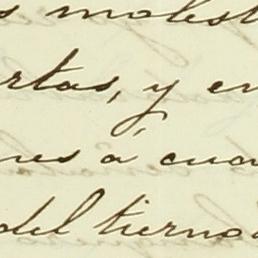 s molest
rtas, y en
nes á cua
del tierno